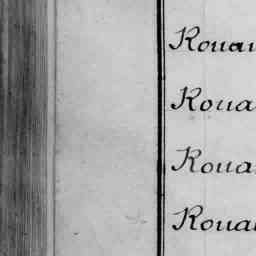 Rouau
Roua
Roua
Roual